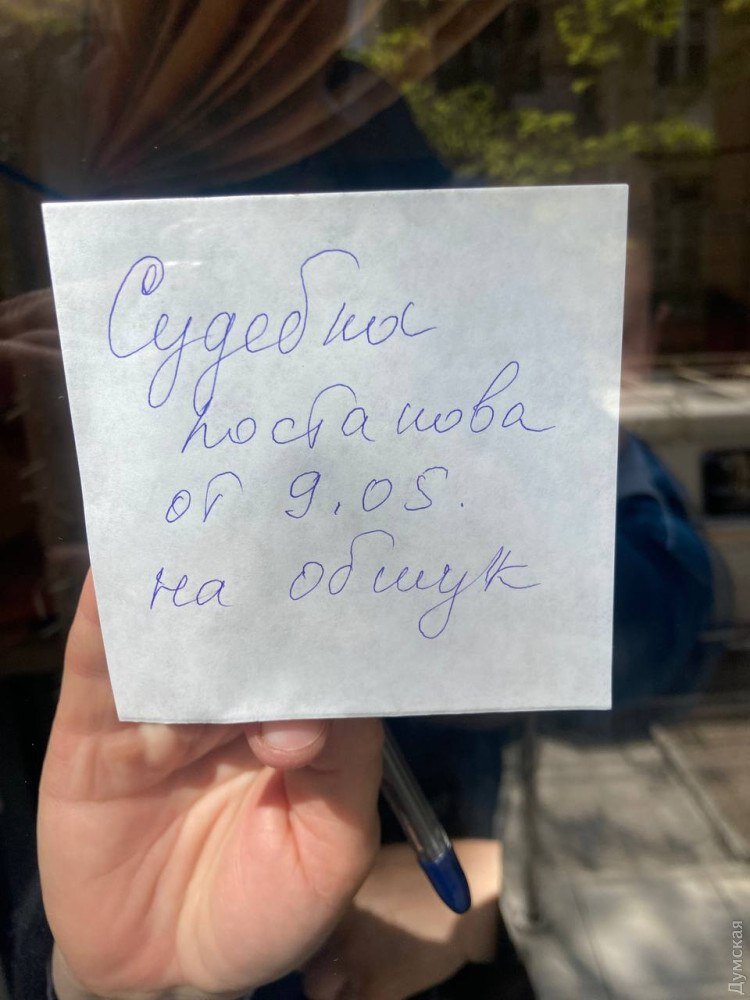 Судебна
постанова
от 9.05.
на обшук
Думская